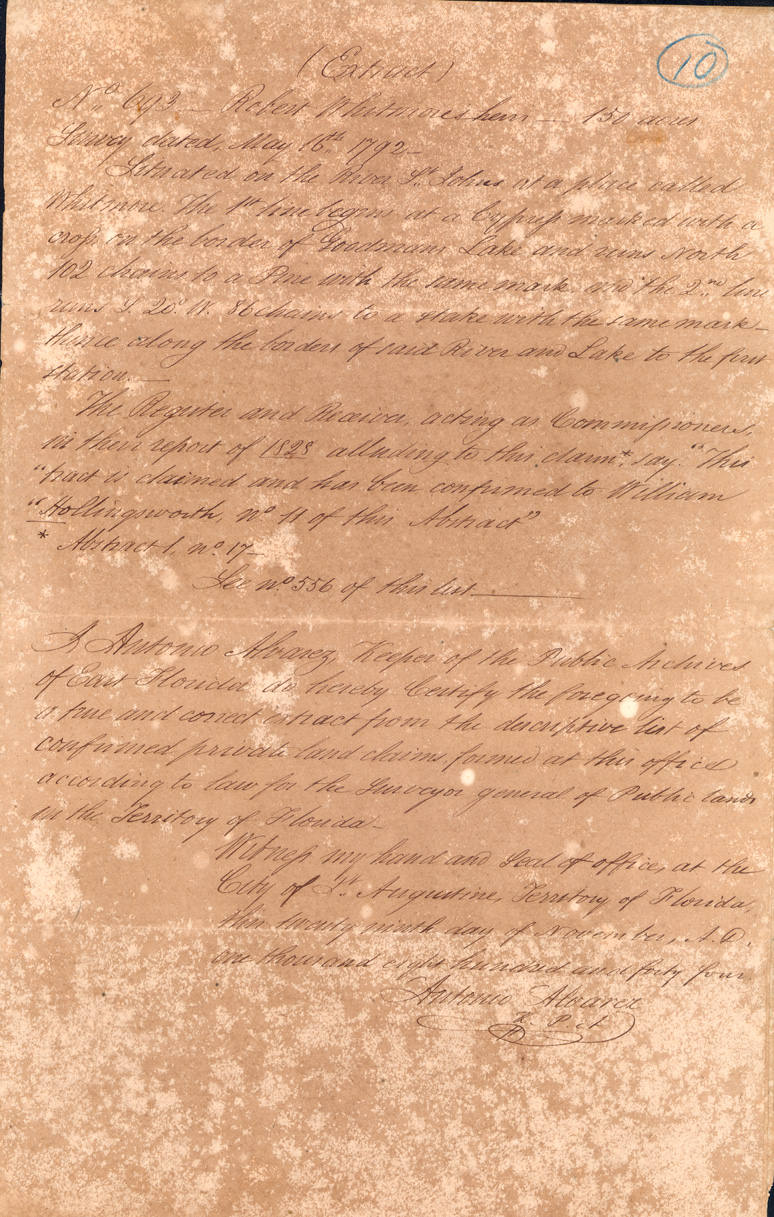 10
(Extract)
No. 693 — Robert Whitmores heirs — 150 acres
Survey dated, May 16th 1792 —
Situated on the River St. Johns at a place called
Whitmore. The 1st line begins at a Cypress marked with a
cross on the border of Goodmans Lake and runs North
102 chains to a Pine with the same mark, and the 2nd line
runs S. 20° W. 86 chains to a stake with the same mark —
thence along the borders of said River and Lake to the first
station. —
The Register and Receiver, acting as Commissioners,
in their report of 1828 alluding to this claim*, say. "This
"tract is claimed and has been confirmed to William
"Hollingsworth, no 11 of this Abstract"
* Abstract 1, no. 17 —
See no. 556 of this list
I Antonio Alvarez, Keeper of the Public Archives
of East Florida do hereby Certify the foregoing to be
a true and correct extract from the descriptive list of
confirmed private land claims, formed at this office
according to law for the Surveyor general of Public lands
in the Territory of Florida —
Witness my hand and Seal of office, at the
City of St. Augustine, Territory of Florida,
this twenty ninth day of November, A.D.
one thousand eight hundred and forty four
Antonio Alvarez
K. P. A